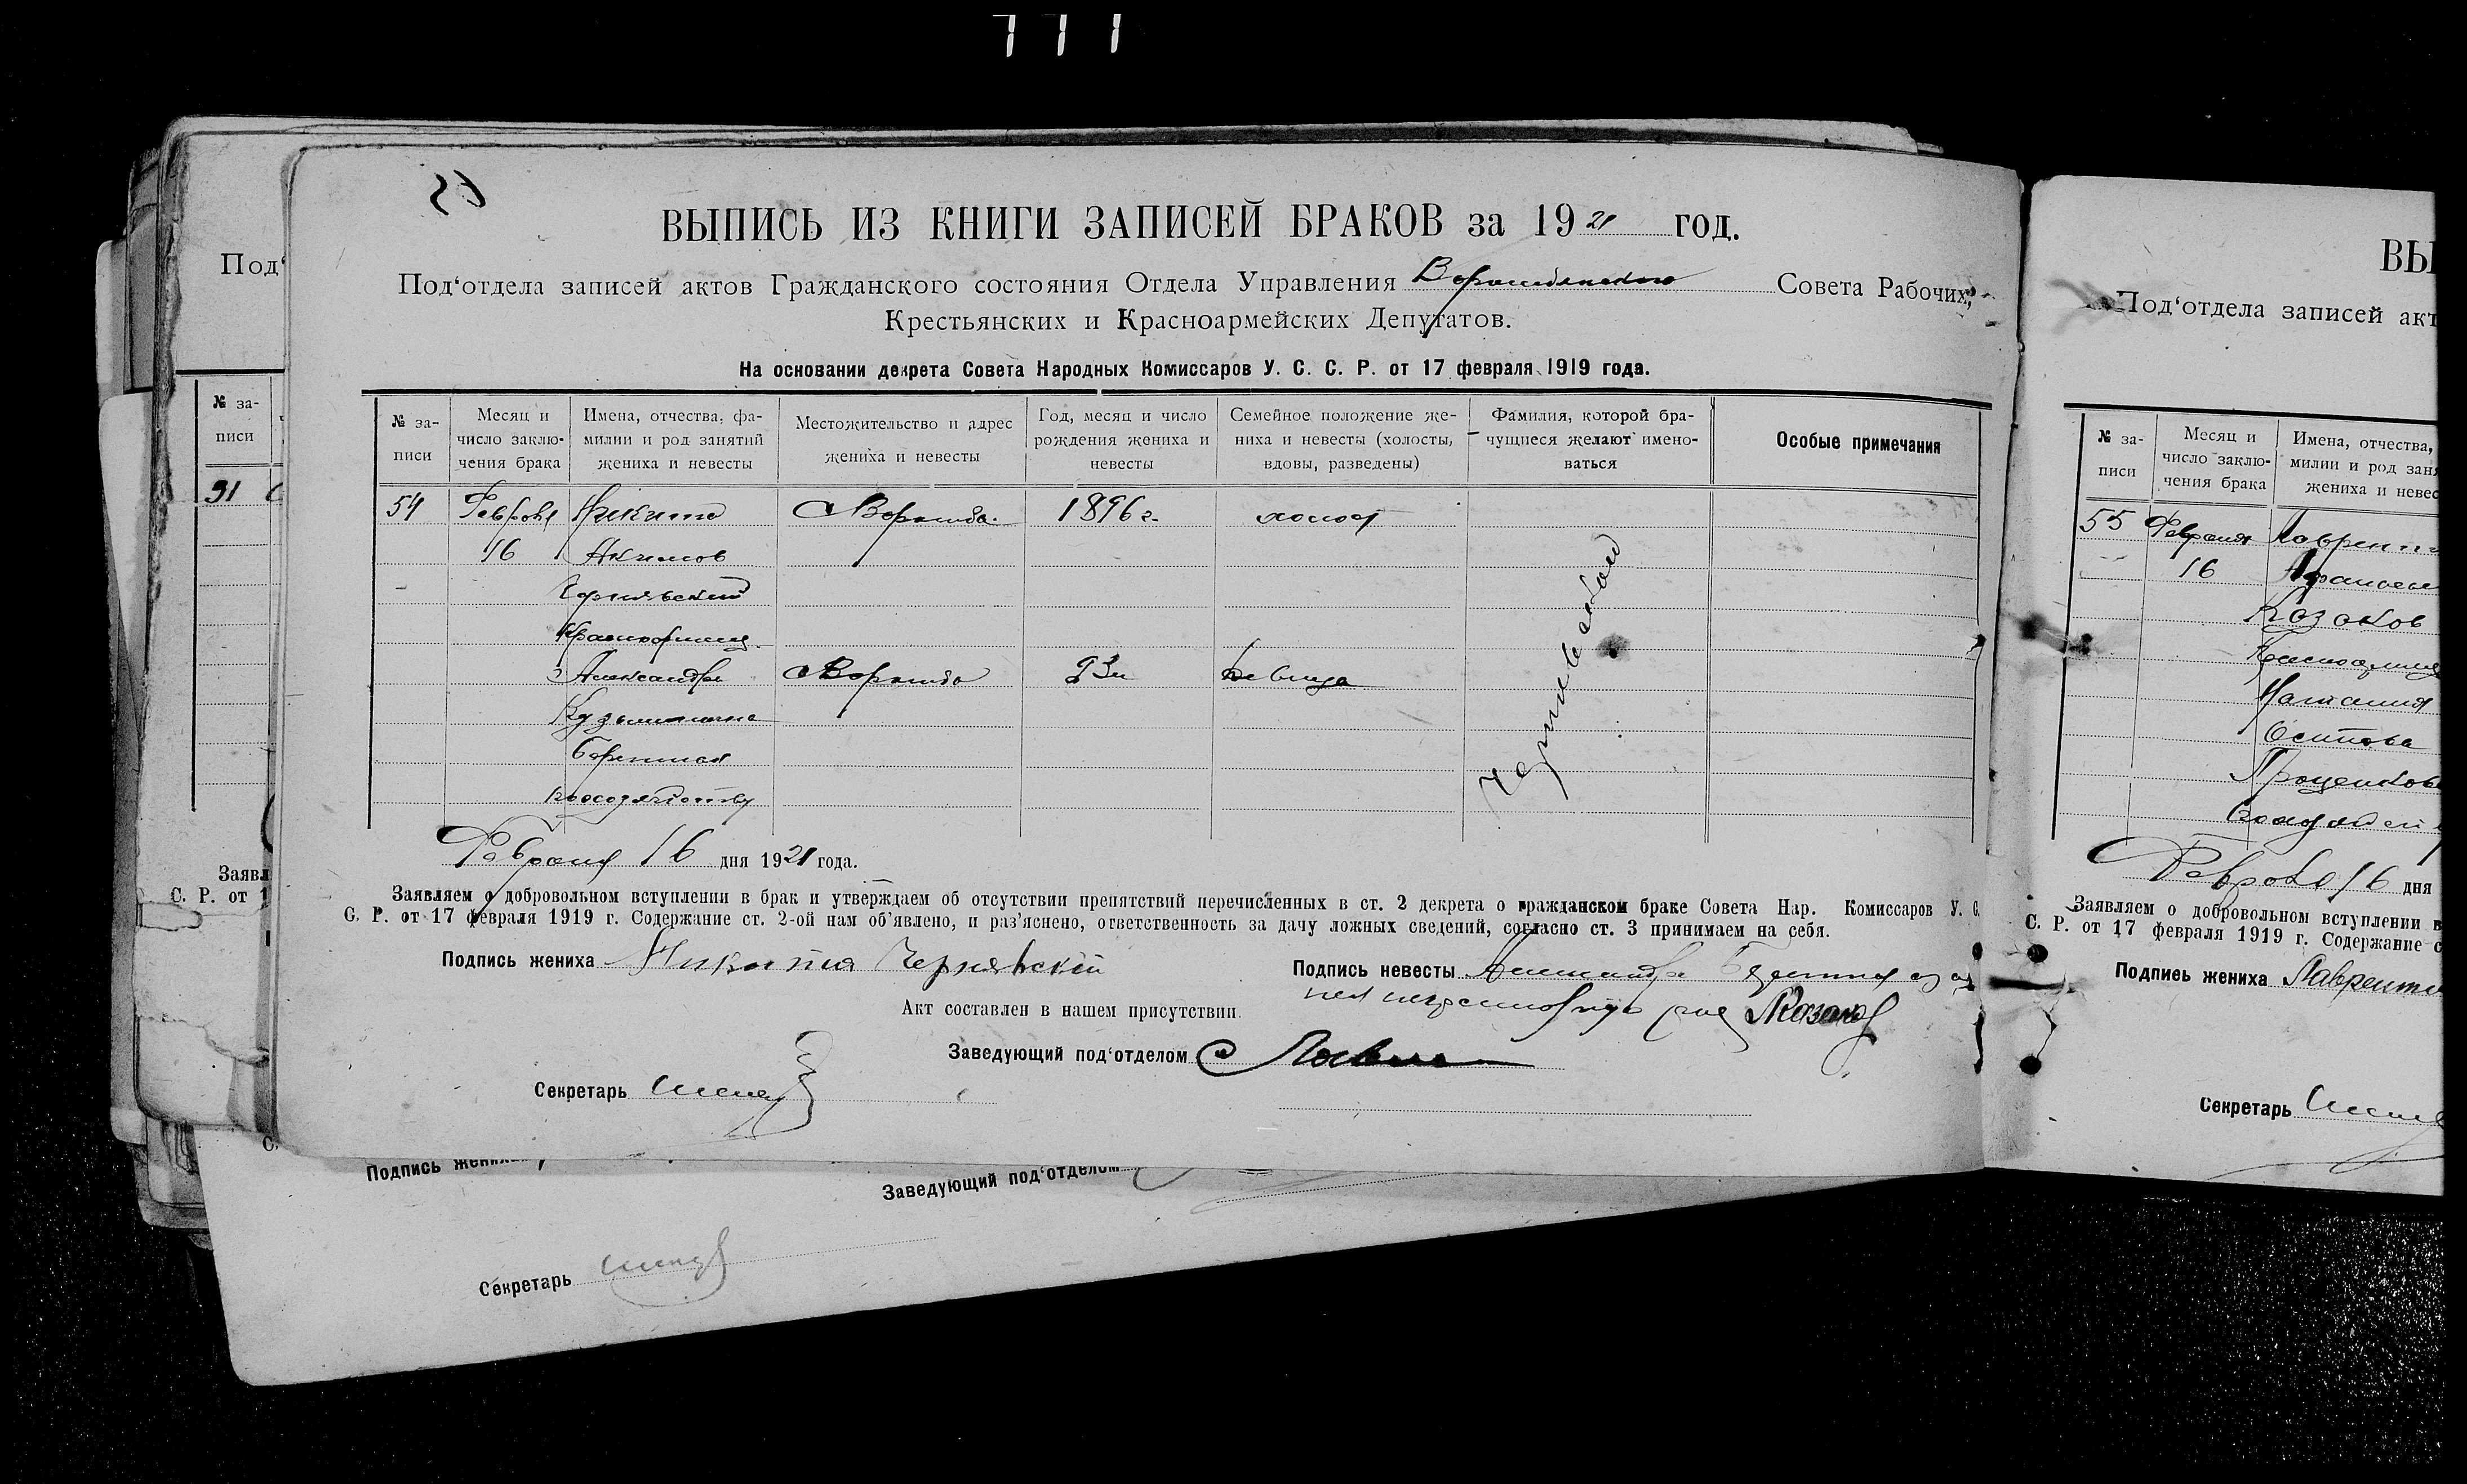 ВЫПИСЬ ИЗ КНИГИ ЗАПИСЕЙ БРАКОВ за 1921 год.
Под‘отдела записей актов Гражданского состояния Отдела Управления Ворожбянского Совета Рабочих,
Крестьянских и Красноармейских Депутатов.
На основании декрета Совета Народных Комиссаров У. С. С. Р. от 17 февраля 1919 года.
№ за-
писи
Месяц и
число заклю-
чения брака
Имена, отчества, фа-
милии и род занятий
жениха и невесты
Местожительство и адрес
жениха и невесты
Год, месяц и число
рождения жениха и
невесты
Семейное положение же-
ниха и невесты (холосты,
вдовы, разведены)
Фамилия, которой бра-
чущиеся желают имено-
ваться
Особые примечания
54 Февраля Никита С Ворожба 1896 г. холост
16 Акимов
Чернявский
Красноармеец
Александра С Ворожба девица
Кузьминична
Февраля 16 дня 1921 года.
Заявляем о добровольном вступлении в брак и утверждаем об отсутствии препятствий перечисленных в ст. 2 декрета о гражданском браке Совета Нар. Комиссаров У. С.
С. Р. от 17 февраля 1919 г. Содержание ст. 2-ой нам об’явлено, и раз’яснено, ответственность за дачу ложных сведений, согласно ст. 3 принимаем на себя.
Подпись жениха Никита Чернявский
Подпись невесты Александра
Казаков
Акт составлен в нашем присутствии.
Заведующий под‘отделом
Секретарь
Под‘
№ за-
писи
91
Заявл
С. Р. от 1
Подпись жениха
Заведующий под‘отделом
Секретарь
ВЫ
Под‘отдела записей акт
№ за-
писи
Месяц и
число заклю-
чения брака
Имена, отчества,
милии и род заня
жениха и невес
55 Февраля
16
Казаков
Наталия
Осипова
Февраля 16 дня
Заявляем о добровольном вступлении в
С. Р. от 17 февраля 1919 г. Содержание с
Подпись жениха
Секретарь